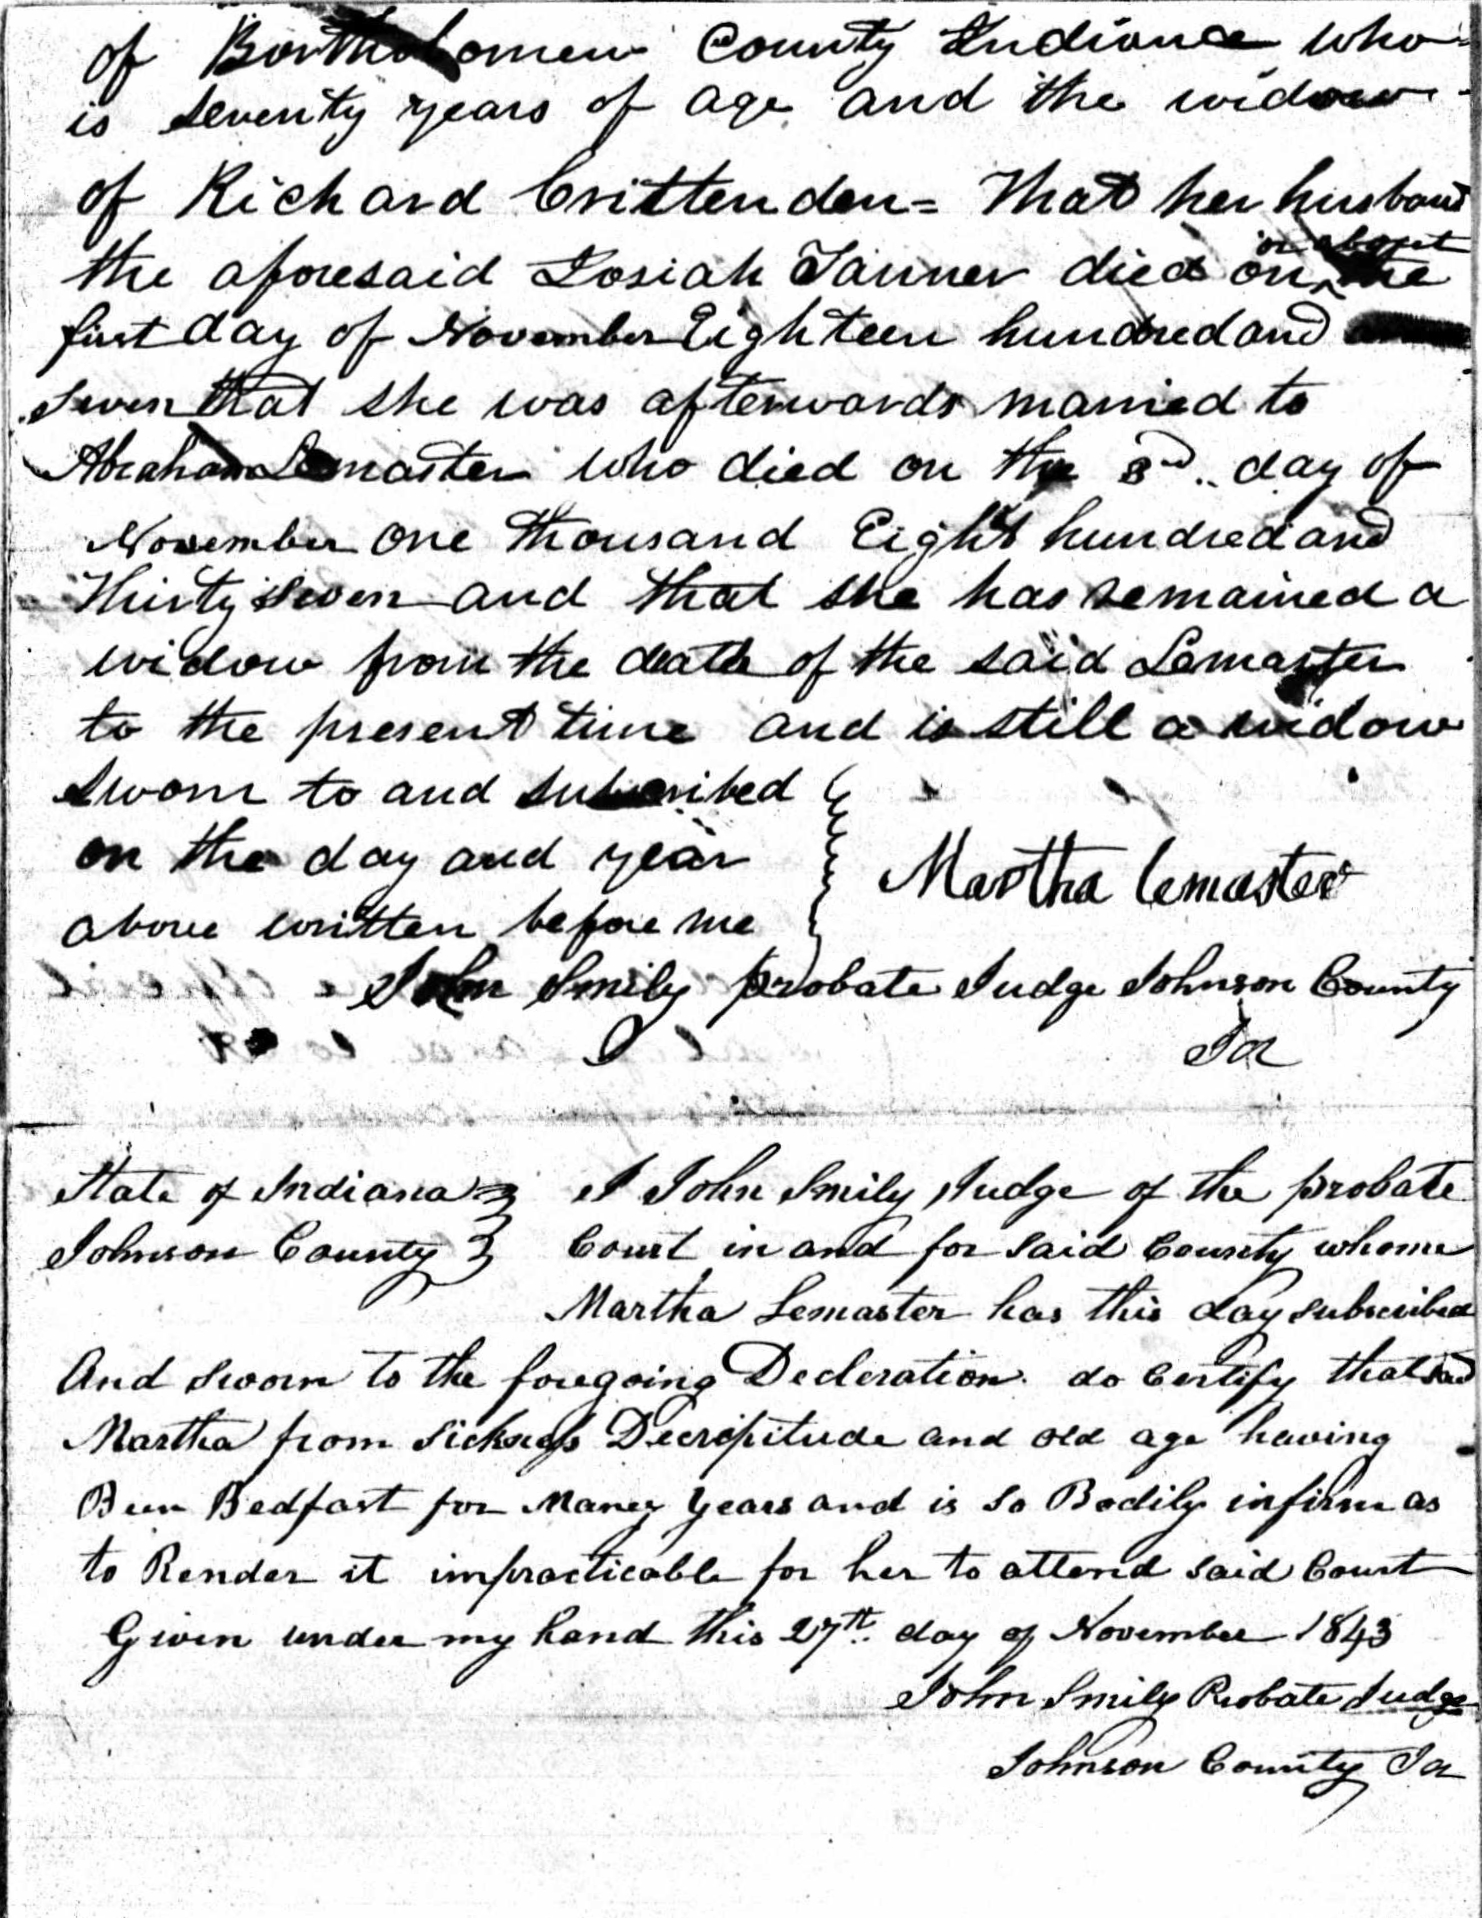 of Bartholomew County Indiana who
is seventy years of age and the widow
of Richard Crittenden = That her husband
the aforesaid Josiah Tanner died on or about the
first day of November Eighteen hundred and
seven that she was afterwards married to
Abraham Lemaster who died on the 3rd.. day of
November one thousand Eight hundred and
Thirty seven and that she has remained a
widow from the death of the said Lemaster
to the present time and is still a widow
Sworn to and subscribed
on the day and year
above written before me
Martha Lemaster
John Smily probate Judge Johnson County
Ia
State of Indiana
Johnson County
I John Smily Judge of the probate
Court in and for said County whome
Martha Lemaster has this day subscribed
And sworn to the foregoing Decleration do Certify that said
Martha from Sickness Decripitude and old age having
Been Bedfast for Maney Years and is so Bodily infirm as
to Render it impracticable for her to attend said Court
Given under my hand this 27th. day of November 1843
John Smily Probate Judge
Johnson County Ia